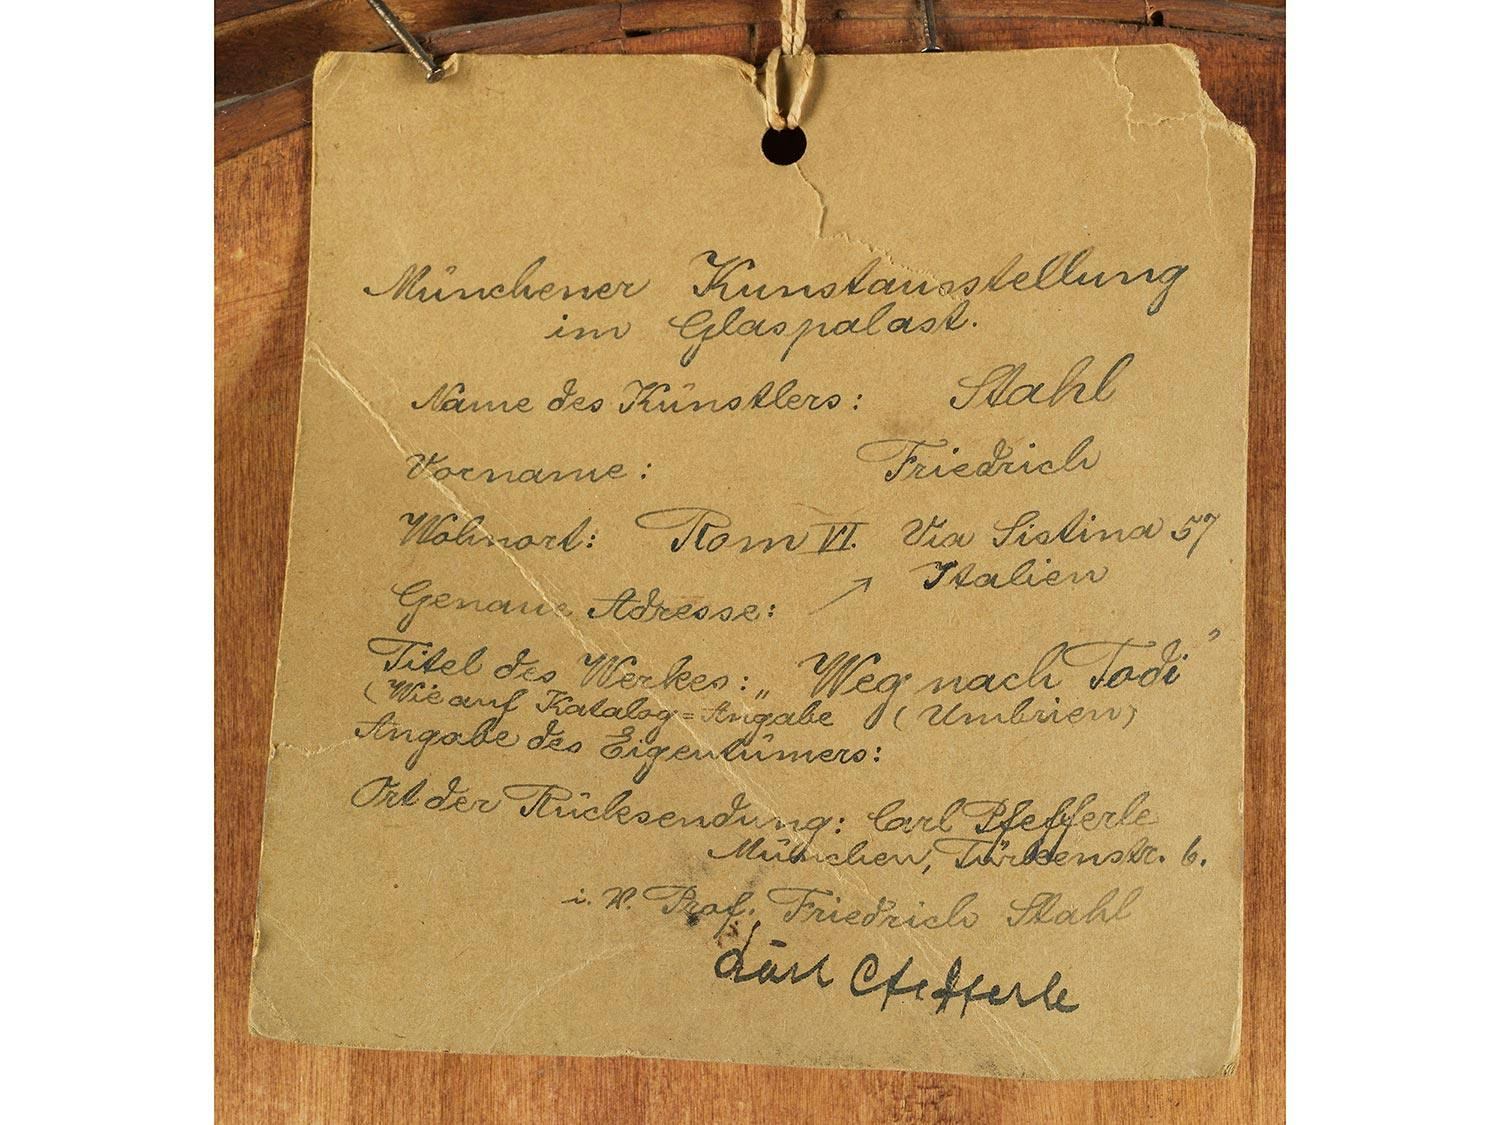 Münchener Kunstausstellung
im Glaspalast.
Name des Künstlers: Stahl
Vorname: Friedrich
Wohnort: Rom VI. Via Sistina 57
Italien
Genaue Adresse: ↗
Titel des Werkes: „Weg nach Todi”
(Wie auf Katalog=Angabe (Umbrien)
Angabe des Eigentümers:
Ort der Rücksendung: Carl Pfefferle
München, Türkenstr. 6.
i. V. Prof. Friedrich Stahl
Carl Pfefferle